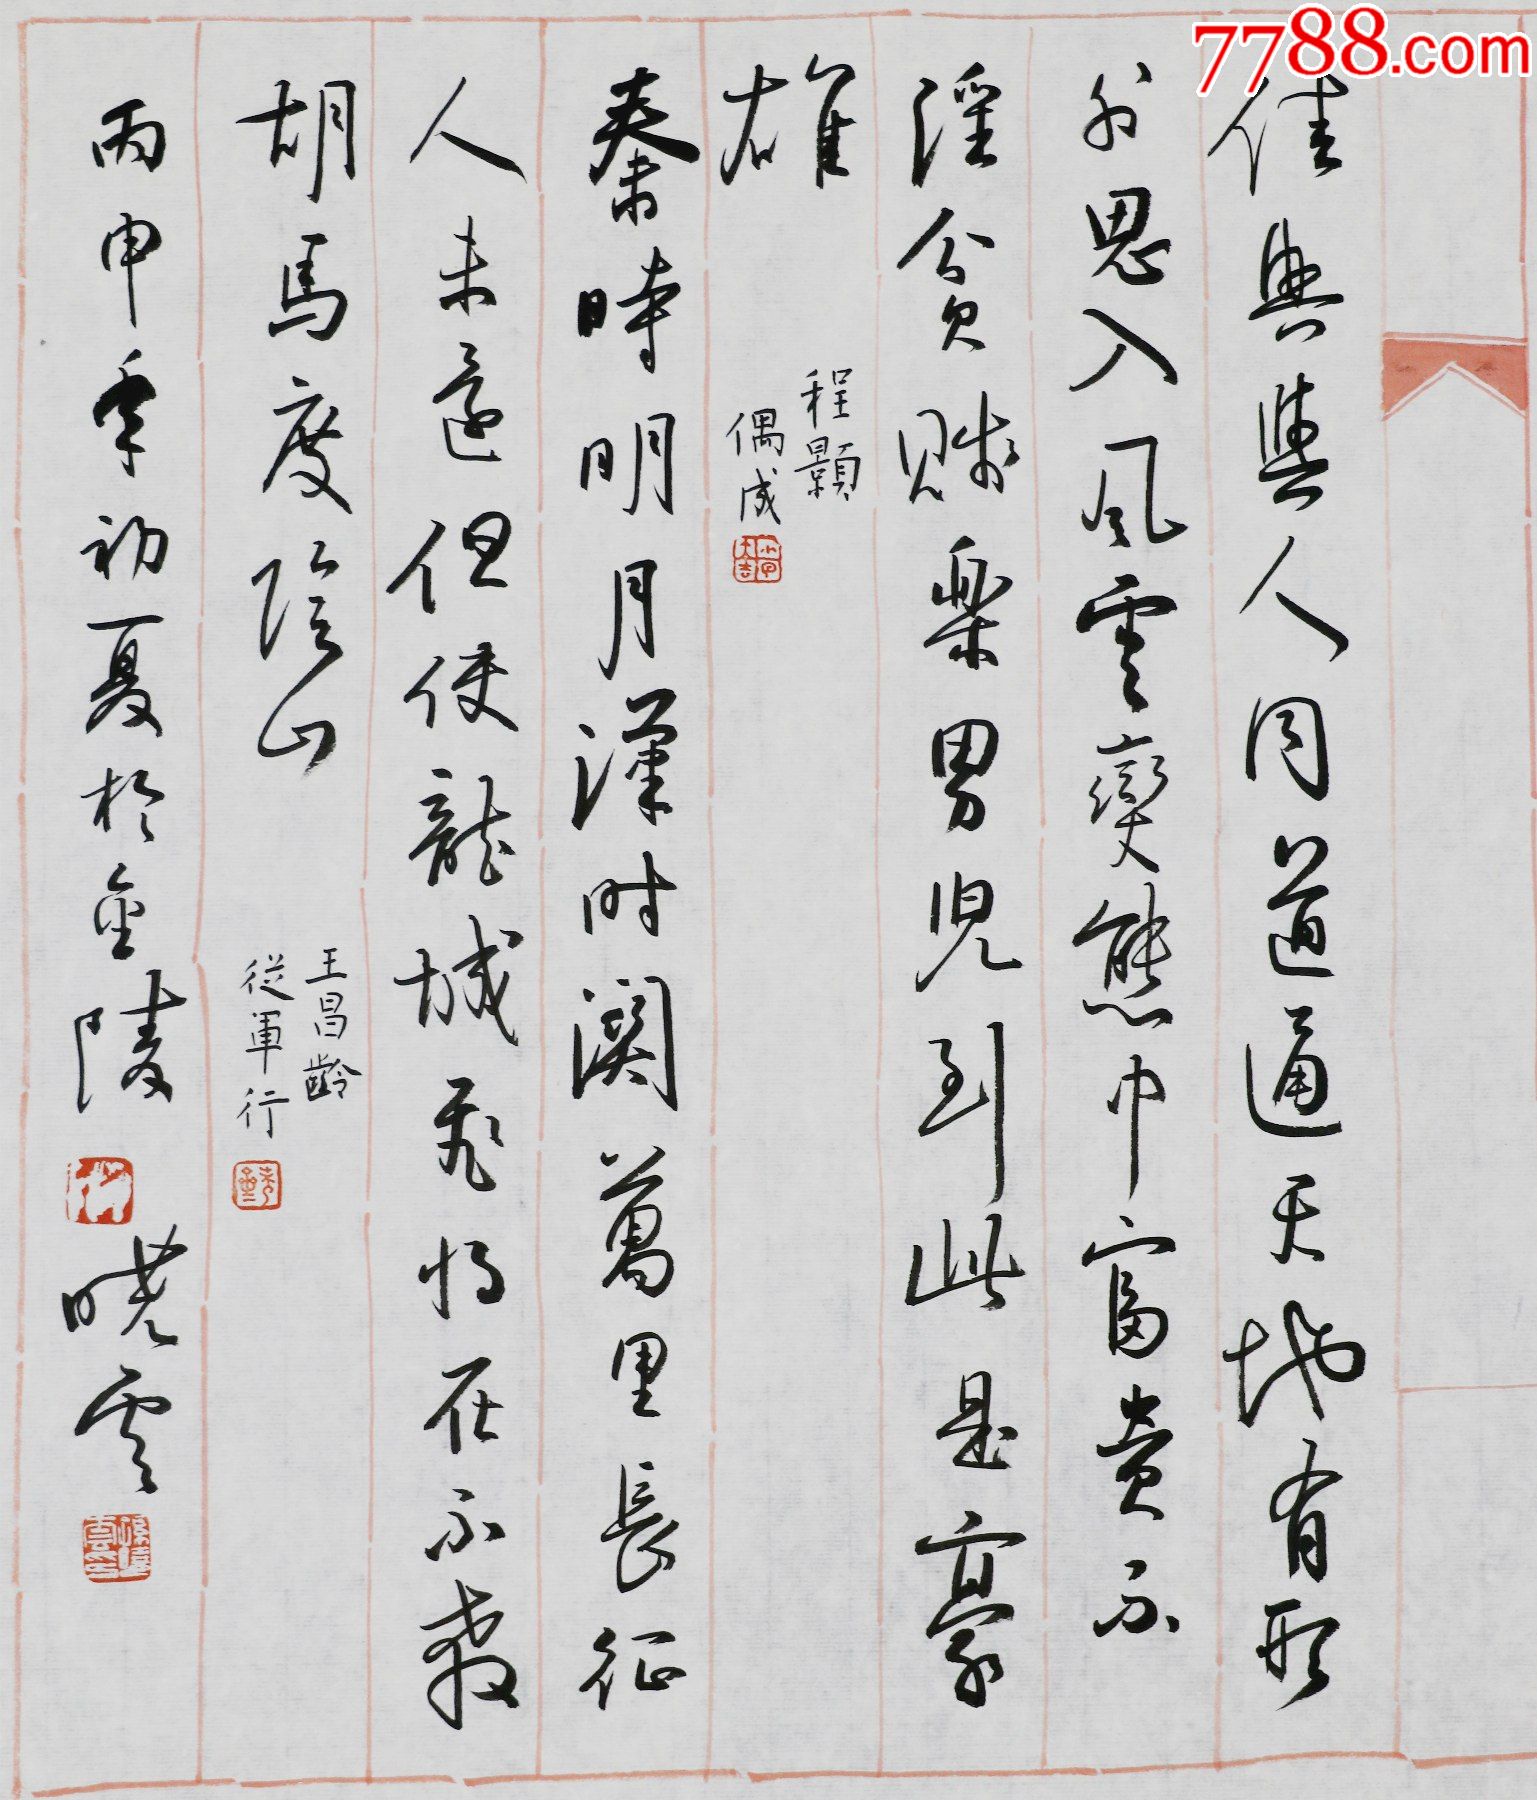 7788.com
佳興與人同道通天地有形
外思入風雲變態中富貴不
淫貧賤樂男兒到此是豪
雄
程顥
偶成
秦時明月漢时関萬里長征
人未還但使龍城飛将在不教
胡馬度陰山
王昌齡
從軍行
丙申年初夏於金陵 曉雲